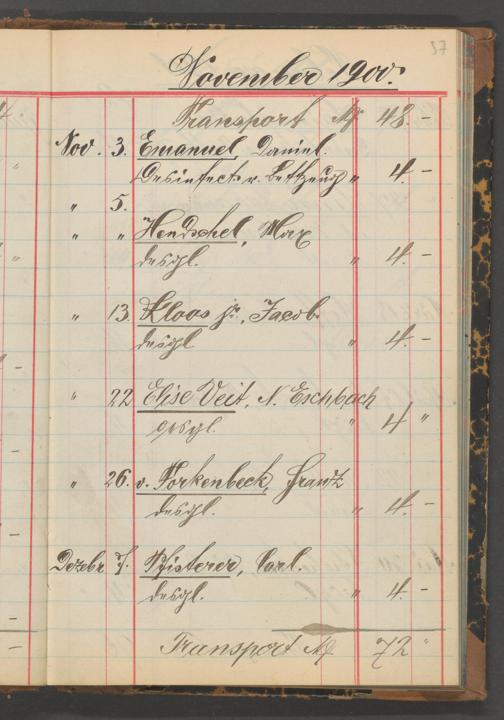 57
November 1900.
Transport M 48. –
Nov. 3. Emanuel, Daniel.
Desinfect. v. Bettzeug " 4. –
" 5.
" " Hendschel, Max
desgl. " 4. –
" 13. Kloos jr., Jacob.
desgl " 4. –
" 22 Elise Veit, N. Eschbach
desgl. " 4 "
" 26. v. Forkenbeck, Frantz
desgl. " 4. –
Dezbr 7. Pfisterer, Carl.
desgl. " 4. –
Transport M 72 "